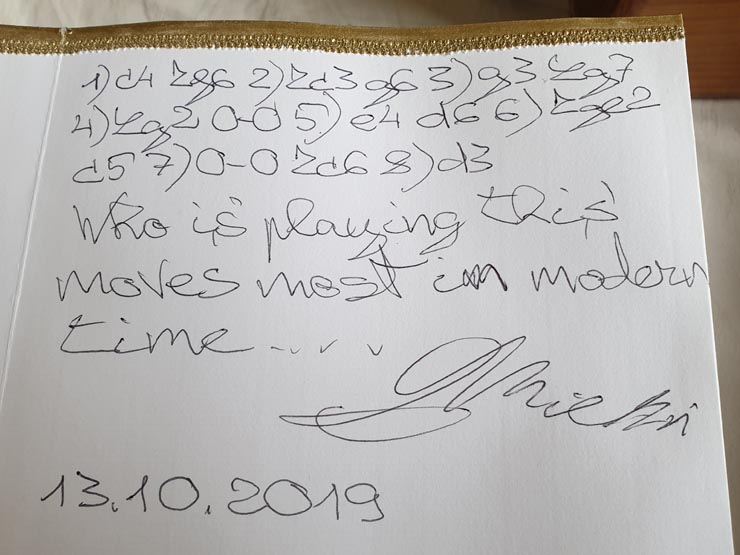 1) c4 Zg6 2) Zc3 g6 3) g3 Lg7
4) Lg2 0-0 5) e4 d6 6) Zge2
c5 7) 0-0 Zc6 8) d3
Who is playing this
moves most in modern
time....
13.10.2019